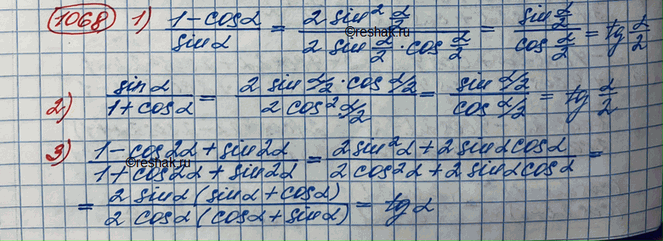 1068 1) (1-cosα)/(sinα) = (2 sin² α/2)/(2 sin α/2 · cos α/2) = (sin α/2)/(cos α/2) = tg α/2
©reshak.ru
2) (sinα)/(1+cosα) = (2 sin α/2 · cos α/2)/(2 cos² α/2) = (sin α/2)/(cos α/2) = tg α/2
3) (1-cos2α+sin2α)/(1+cos2α+sin2α) = (2sin²α+2sinαcosα)/(2cos²α+2sinαcosα) =
©reshak.ru
= (2 sinα(sinα+cosα))/(2 cosα(cosα+sinα)) = tgα